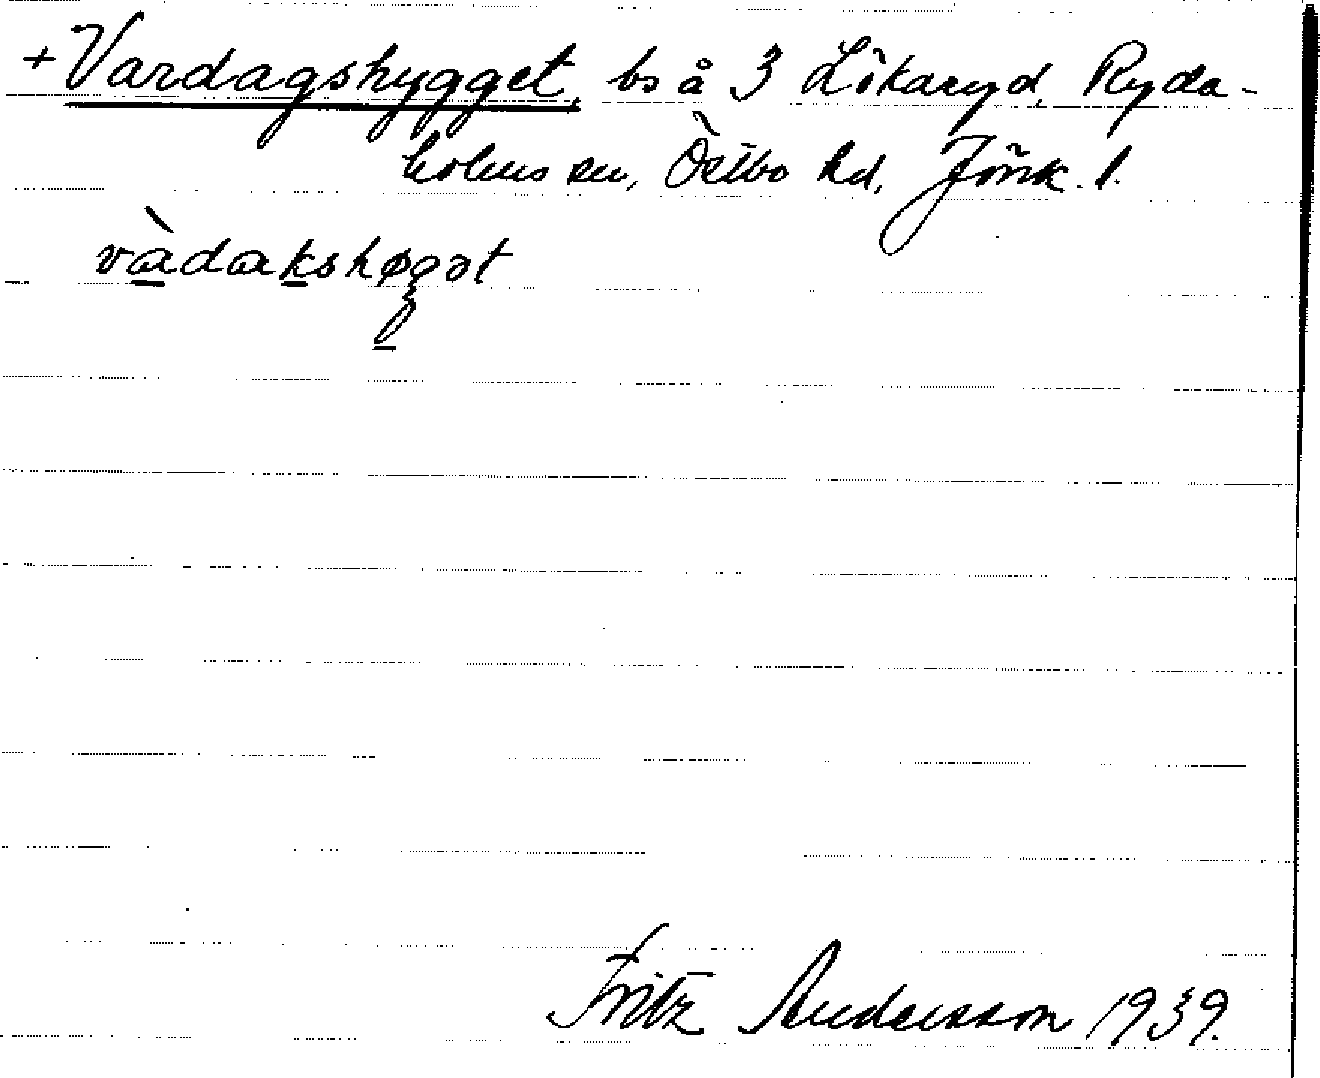 +Vardagshygget, bs å 3 Likaryd, Ryda-
holms sn, Östbo hd, Jönk. l.
vàdakshøgət
Fritz Andersson 1939.